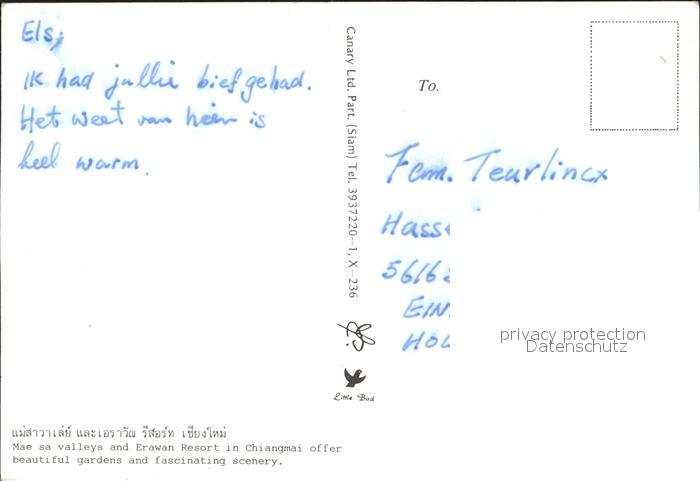 Els,
IK had jullie bief gehad.
Het weet van heir is
heel warm.
Canary Ltd. Part. (Siam) Tel. 3937220-1, X-236
Little Bird
To.
Fam. Teurlincx
Hass
5616
EIN
HOL
privacy protection
Datenschutz
แม่สาวาเล่ย์ และเอราวัณ รีสอร์ท เชียงใหม่
Mae sa valleys and Erawan Resort in Chiangmai offer
beautiful gardens and fascinating scenery.